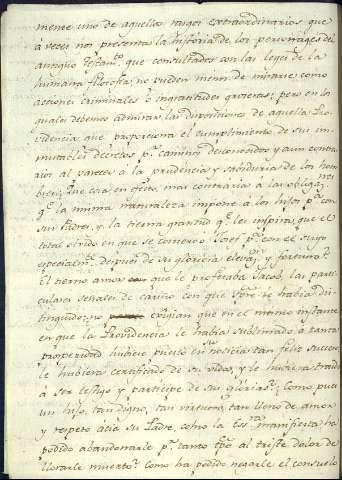 mente uno de aquellos rasgos extraordinarios que
a veces nos presenta la historia de los personages del
antiguo testam.to que consultados con las leyes de la
humana filosofia no pueden menos de mirarse como
acciones criminales ó ingratitudes groseras; pero en los
quales debemos admirar las disposiciones de aquella Pro
videncia que proporciona el cumplimiento de sus in
mutables decretos p.r caminos desconocidos y aun contra
rios al parecer á la prudencia y sabiduria de los hom
bres; que cosa en efecto mas contraria á las obligaz.nes
q.e la misma naturaleza impone á los hijos p.a con
sus Padres, y la tierna gratitud q.e les inspira, que el
total olvido en que se conservó Josef p.a con el suyo
especialm.te despues de su gloriosa elevaz.n y fortuna?
El tierno amor que le profesaba Jacob, las parti
culares señales de cariño con que siempre le habia dis
tinguido, exigian que en el mismo instante
en que la Providencia le habia sublimado á tanta
prosperidad hubiese puesto en su noticia tan feliz suceso,
le hubiera certificado de su vida, y le hubiera traido
á ser testigo y participe de sus glorias; Como pues
un hijo, tan digno, tan virtuoso, tan lleno de amor
y respeto acia su Padre, como la Ess.ra manifiesta ha
podido abandonarle p.r tanto tpo al triste dolor de
llorarle muerto? como ha podido negarle el consuelo